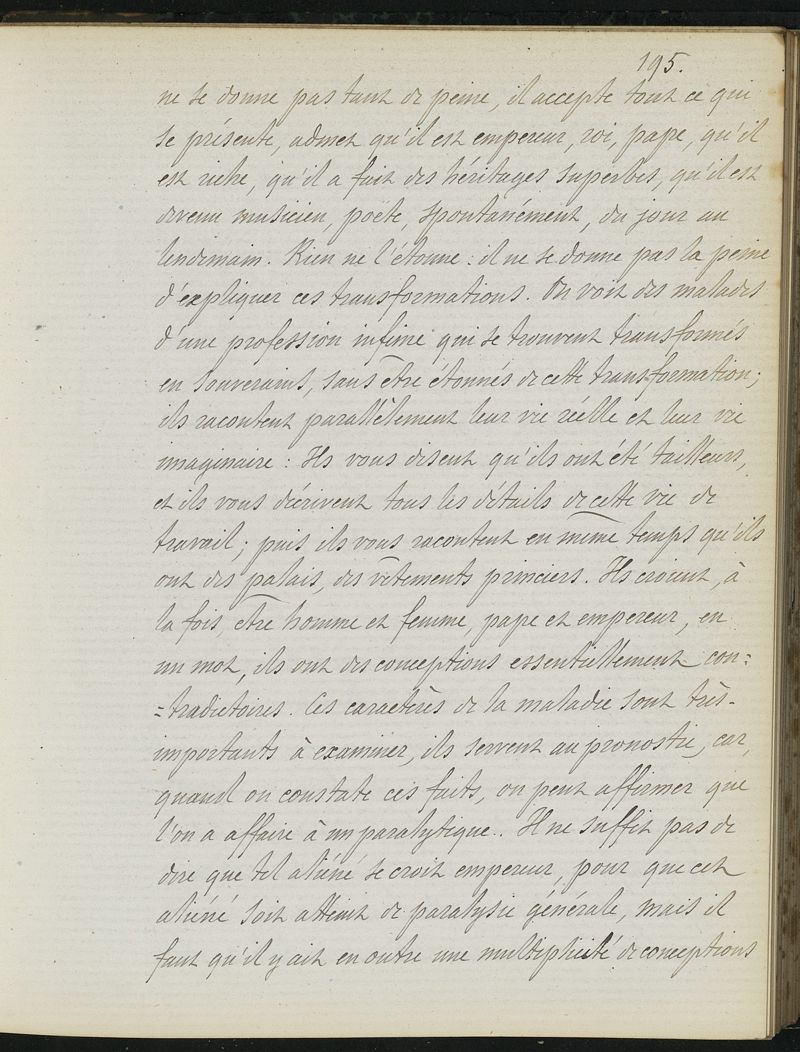 195.
ne se donne pas tant de peine, il accepte tout ce qui
se présente, admet qu'il est empereur, roi, pape, qu'il
est riche, qu'il a fait des héritages superbes, qu'il est
devenu musicien, poëte, spontanément, du jour au
lendemain. Rien ne l'étonne : il ne se donne pas la peine
d'expliquer ces transformations. On voit des malades
d'une profession infime qui se trouvent transformés
en souverains, sans être étonnés de cette transformation ;
ils racontent parallèlement leur vie réelle et leur vie
imaginaire : Ils vous disent qu'ils ont été tailleurs,
et ils vous décrivent tous les détails de cette vie de
travail ; puis ils vous racontent en même temps qu'ils
ont des palais, des vêtements princiers. Ils croient, à
la fois, être homme et femme, pape et empereur, en
un mot, ils ont des conceptions essentiellement con=
=tradictoires. Ces caractères de la maladie sont très-
importants à examiner, ils servent au pronostic, car,
quand on constate ces faits, on peut affirmer que
l'on a affaire à un paralytique.. Il ne suffit pas de
dire que tel aliéné se croit empereur, pour que cet
aliéné soit atteint de paralysie générale, mais il
faut qu'il y ait en outre une multiplicité de conceptions